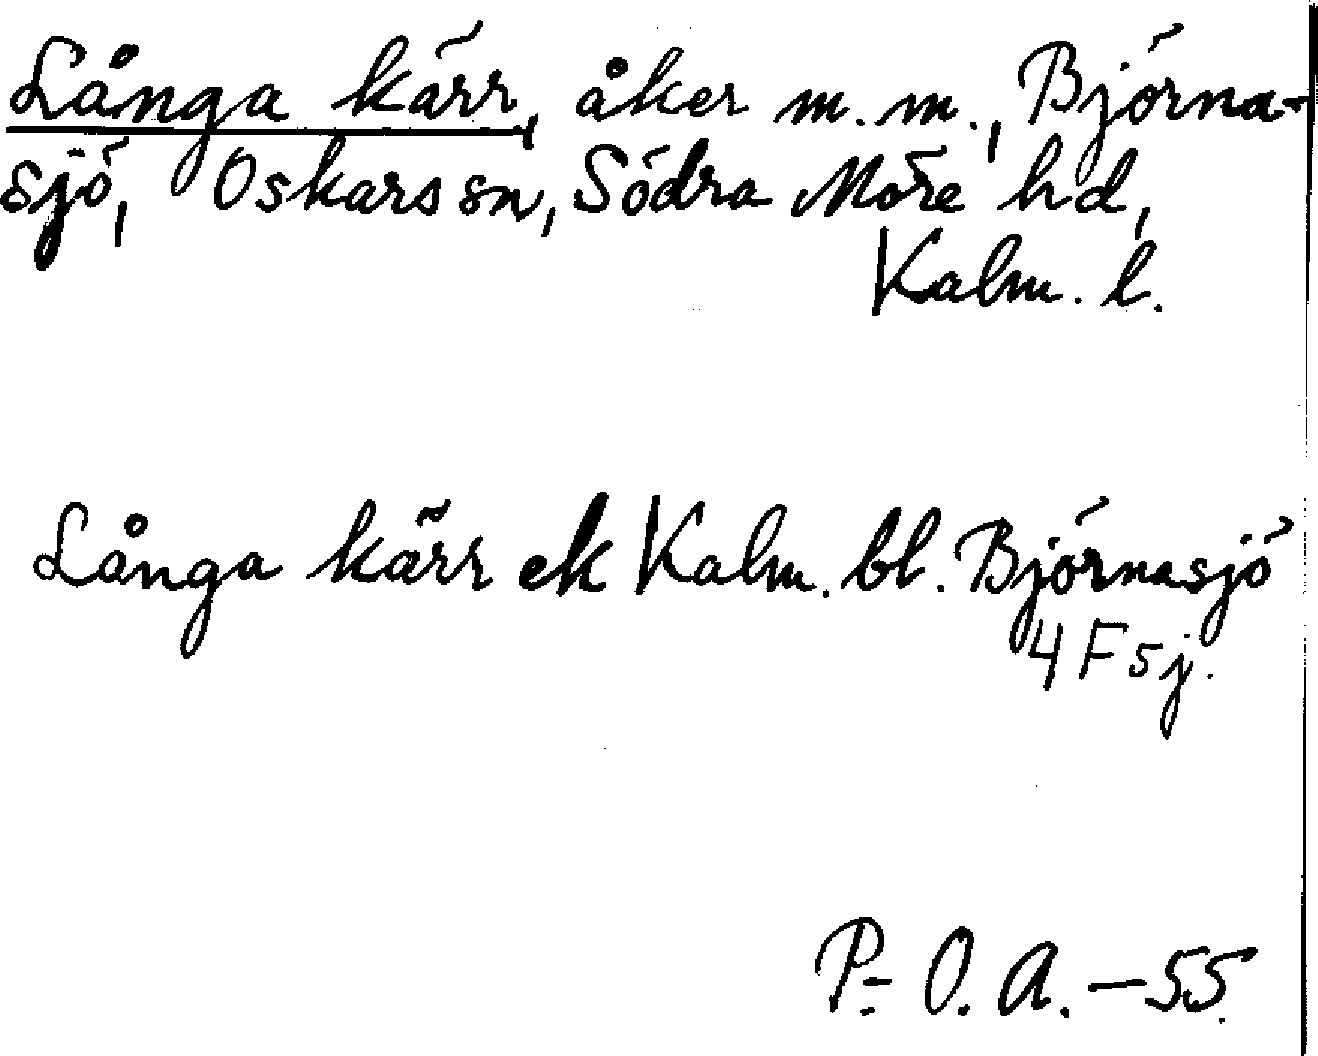 Långa kärr, åker m.m., Björna-
sjö, Oskars sn, Södra Möre hd,
Kalm. l.
Långa kärr ek Kalm. bl. Björnasjö
4 F sj.
P.-O. A. – 55.